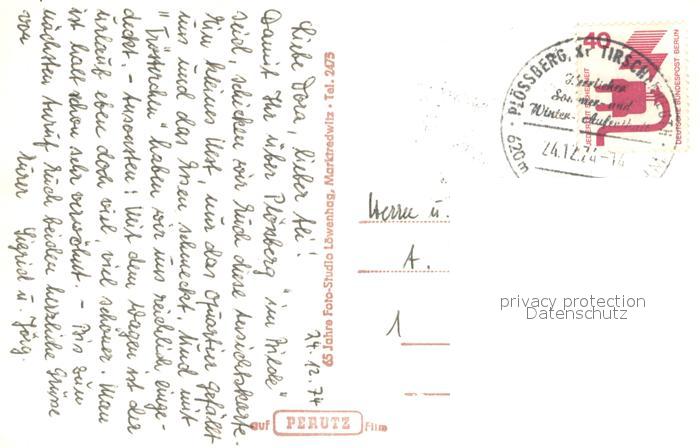 24.12.74
Liebe Dora, lieber Ali!
Damit Ihr über Plößberg "im Bilde"
seid, schicken wir Euch diese Ansichtskarte.
Ein kleines Nest, nur das Quartier gefällt
uns und das Essen schmeckt. Und mit
haben wir uns reichlich einge-
deckt. - Ansonsten: Mit dem Wagen ist der
Urlaub eben doch viel, viel schöner. Man
ist halt schon sehr verwöhnt. - Bis zum
nächsten Anruf Euch beiden herzliche Grüße
von
Eurer Sigrid u. Jörg.
65 Jahre Foto-Studio Löwenhag, Marktredwitz · Tel. 2475
auf PERUTZ Film
40
JEDERZEIT SICHERHEIT
DEUTSCHE BUNDESPOST BERLIN
PLÖSSBERG, KR. TIRSCHENREUTH
Herrlicher
Sommer- und
Winter-Aufenthalt
24.12.74-14
620m
Herrn u.
A.
1
privacy protection
Datenschutz